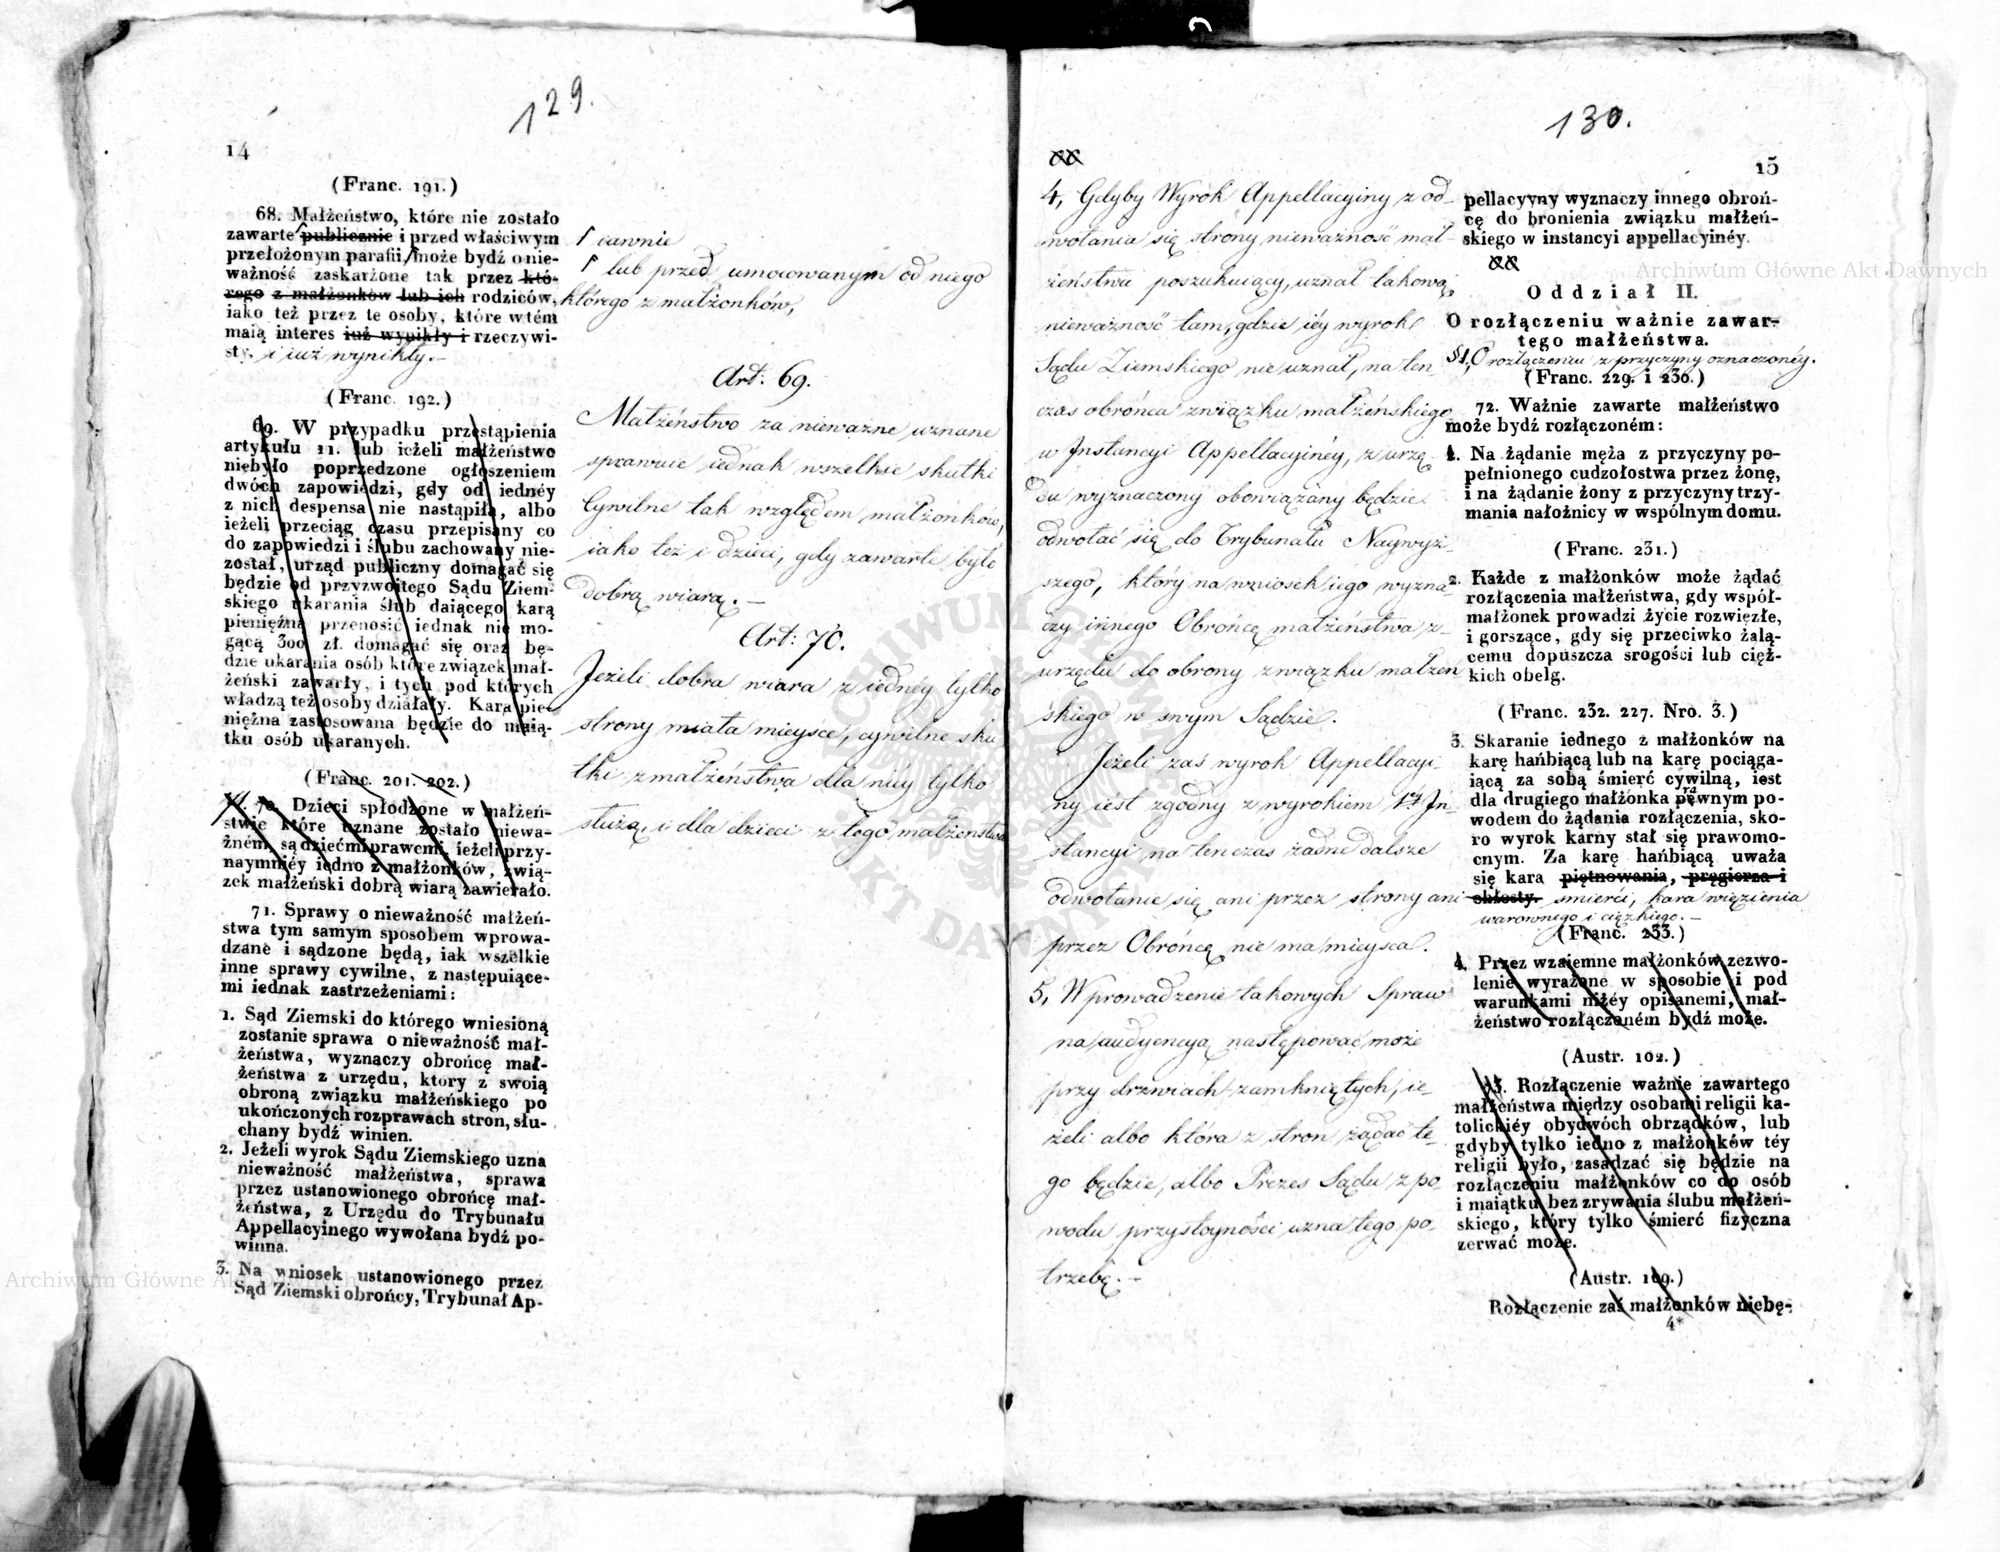 129.
14
(Franc. 191.)
68. Małżeństwo, które nie zostało
zawarte publicznie i przed właściwym
przełożonym parafii, może bydź o nie-
ważność zaskarżone tak przez któ-
rego z małżonków lub ich rodziców,
iako też przez te osoby, które w tém
maią interes iuż wynikły i rzeczywi-
sty. i iuż wynikły.—
(Franc. 192.)
69. W przypadku przestąpienia
artykułu 11. lub ieżeli małżeństwo
niebyło poprzedzone ogłoszeniem
dwóch zapowiedzi, gdy od iednéy
z nich despensa nie nastąpiła, albo
ieżeli przeciąg czasu przepisany co
do zapowiedzi i ślubu zachowany nie-
został, urząd publiczny domagać się
będzie od przyzwoitego Sądu Ziem-
skiego ukarania ślub daiącego karą
pieniężną przenosić iednak nie mo-
gącą 300 zł. domagać się oraz bę-
dzie ukarania osób które związek mał-
żeński zawarły, i tych pod których
władzą też osoby działały. Kara pie-
niężna zastosowana będzie do maią-
tku osób ukaranych.
(Franc. 201. 202.)
70. Dzieci spłodzone w małżeń-
stwie które uznane zostało niewa-
żném, są dziećmi prawemi, ieżeli przy-
naymniéy iedno z małżonków, zwią-
zek małżeński dobrą wiarą zawierało.
71. Sprawy o nieważność małżeń-
stwa tym samym sposobem wprowa-
dzane i sądzone będą, iak wszelkie
inne sprawy cywilne, z następuiące-
mi iednak zastrzeżeniami:
1. Sąd Ziemski do którego wniesioną
zostanie sprawa o nieważność mał-
żeństwa, wyznaczy obrońcę mał-
żeństwa z urzędu, ktory z swoią
obroną związku małżeńskiego po
ukończonych rozprawach stron, słu-
chany bydź winien.
2. Jeżeli wyrok Sądu Ziemskiego uzna
nieważność małżeństwa, sprawa
przez ustanowionego obrońcę mał-
żeństwa, z Urzędu do Trybunału
Appellacyinego wywołana bydź po-
winna.
3. Na wniosek ustanowionego przez
Sąd Ziemski obrońcy, Trybunał Ap-
iawnie
lub przed umocowanym od niego
którego z małżonków,
Art: 69.
Małżeństwo za nieważne uznane
sprawuie iednak wszelkie skutki
Cywilne tak względem małżonków,
iako też i dzieci, gdy zawarte było
dobrą wiarą.—
Art: 70.
Jeżeli dobra wiara z iednéy tylko
strony miała mieysce, cywilne sku
tki z małżeństwa dla niéy tylko
służą, i dla dzieci z tego małżeństwa
130.
15
4, Gdyby Wyrok Appellacyiny z od-
wołania się strony nieważność mał-
żeństwa poszukuiący, uznał takową
nieważność tam, gdzie iéy wyrok
Sądu Ziemskiego nie uznał, na ten
czas obrońca związku małżeńskiego
w Instancyi Appellacyinéy, z urzę-
du wyznaczony obowiązany będzie
odwołać się do Trybunału Naywyż-
szego, który na wniosek iego wyzna-
czy innego Obrońcę małżeństwa z
urzędu do obrony związku małżeń
skiego w swym Sądzie.
Jeżeli zaś wyrok Appellacyi-
ny iest zgodny z wyrokiem 1éy In-
stancyi na tenczas żadne dalsze
odwołanie się ani przez strony ani
przez Obrońcę nie ma mieysca.
5, Wprowadzenie takowych Spraw
na audyencyą następować może
przy drzwiach zamkniętych, ie-
żeli albo która z stron żądać te-
go będzie, albo Prezes Sądu z po-
wodu przystoyności uzna tego po-
trzebę.—
pellacyyny wyznaczy innego obroń-
cę do bronienia związku małżeń-
skiego w instancyi appellacyinéy.
Oddział II.
O rozłączeniu ważnie zawar-
tego małżeństwa.
§1, O rozłączeniu z przyczyny oznaczonéy.
(Franc. 229. i 230.)
72. Ważnie zawarte małżeństwo
może bydź rozłączoném:
1. Na żądanie męża z przyczyny po-
pełnionego cudzołostwa przez żonę,
i na żądanie żony z przyczyny trzy-
mania nałożnicy w wspólnym domu.
(Franc. 231.)
2. Każde z małżonków może żądać
rozłączenia małżeństwa, gdy współ-
małżonek prowadzi życie rozwięzłe,
i gorszące, gdy się przeciwko żalą-
cemu dopuszcza srogości lub cięż-
kich obelg.
(Franc. 232. 227. Nro. 3.)
3. Skaranie iednego z małżonków na
karę hańbiącą lub na karę pociąga-
iącą za sobą śmierć cywilną, iest
dla drugiego małżonka pewnym po-
wodem do żądania rozłączenia, sko-
ro wyrok karny stał się prawomo-
cnym. Za karę hańbiącą uważa
się kara piętnowania, pręgierza i
chłosty. śmierci, kara więzienia
warownego i ciężkiego.—
(Franc. 233.)
4. Przez wzaiemne małżonków zezwo-
lenie wyrażone w sposobie i pod
warunkami niżéy opisanemi, mał-
żeństwo rozłączoném bydź może.
(Austr. 102.)
73. Rozłączenie ważnie zawartego
małżeństwa między osobami religii ka-
tolickiéy obydwóch obrządków, lub
gdyby tylko iedno z małżonków téy
religii było, zasadzać się będzie na
rozłączeniu małżonków co do osób
i maiątku bez zrywania ślubu małżeń-
skiego, który tylko śmierć fizyczna
zerwać może.
(Austr. 109.)
Rozłączenie zaś małżonków niebę-
4*
Archiwum Główne Akt Dawnych
Archiwum Główne Akt Dawnych
ARCHIWUM GŁÓWNE AKT DAWNYCH